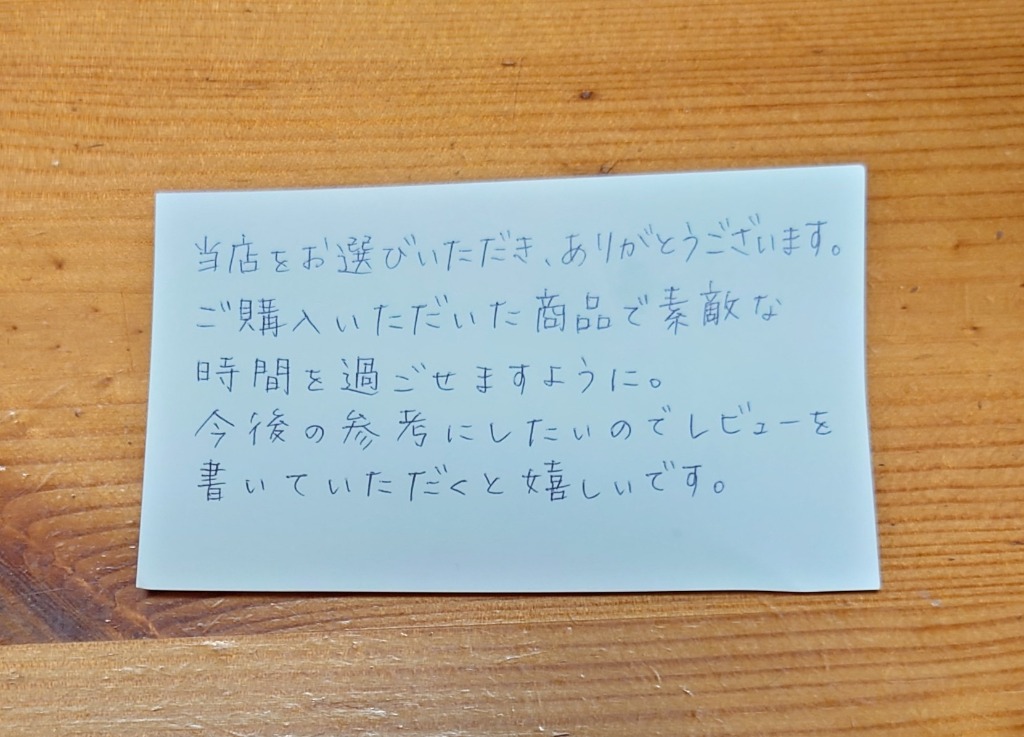 当店をお選びいただき、ありがとうございます。
ご購入いただいた商品で素敵な
時間を過ごせますように。
今後の参考にしたいのでレビューを
書いていただくと嬉しいです。